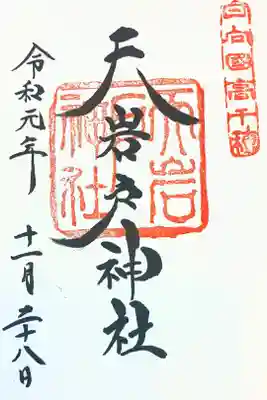 日向國高千穂
天岩戸神社
天岩戸神社
令和元年
十一月二十八日